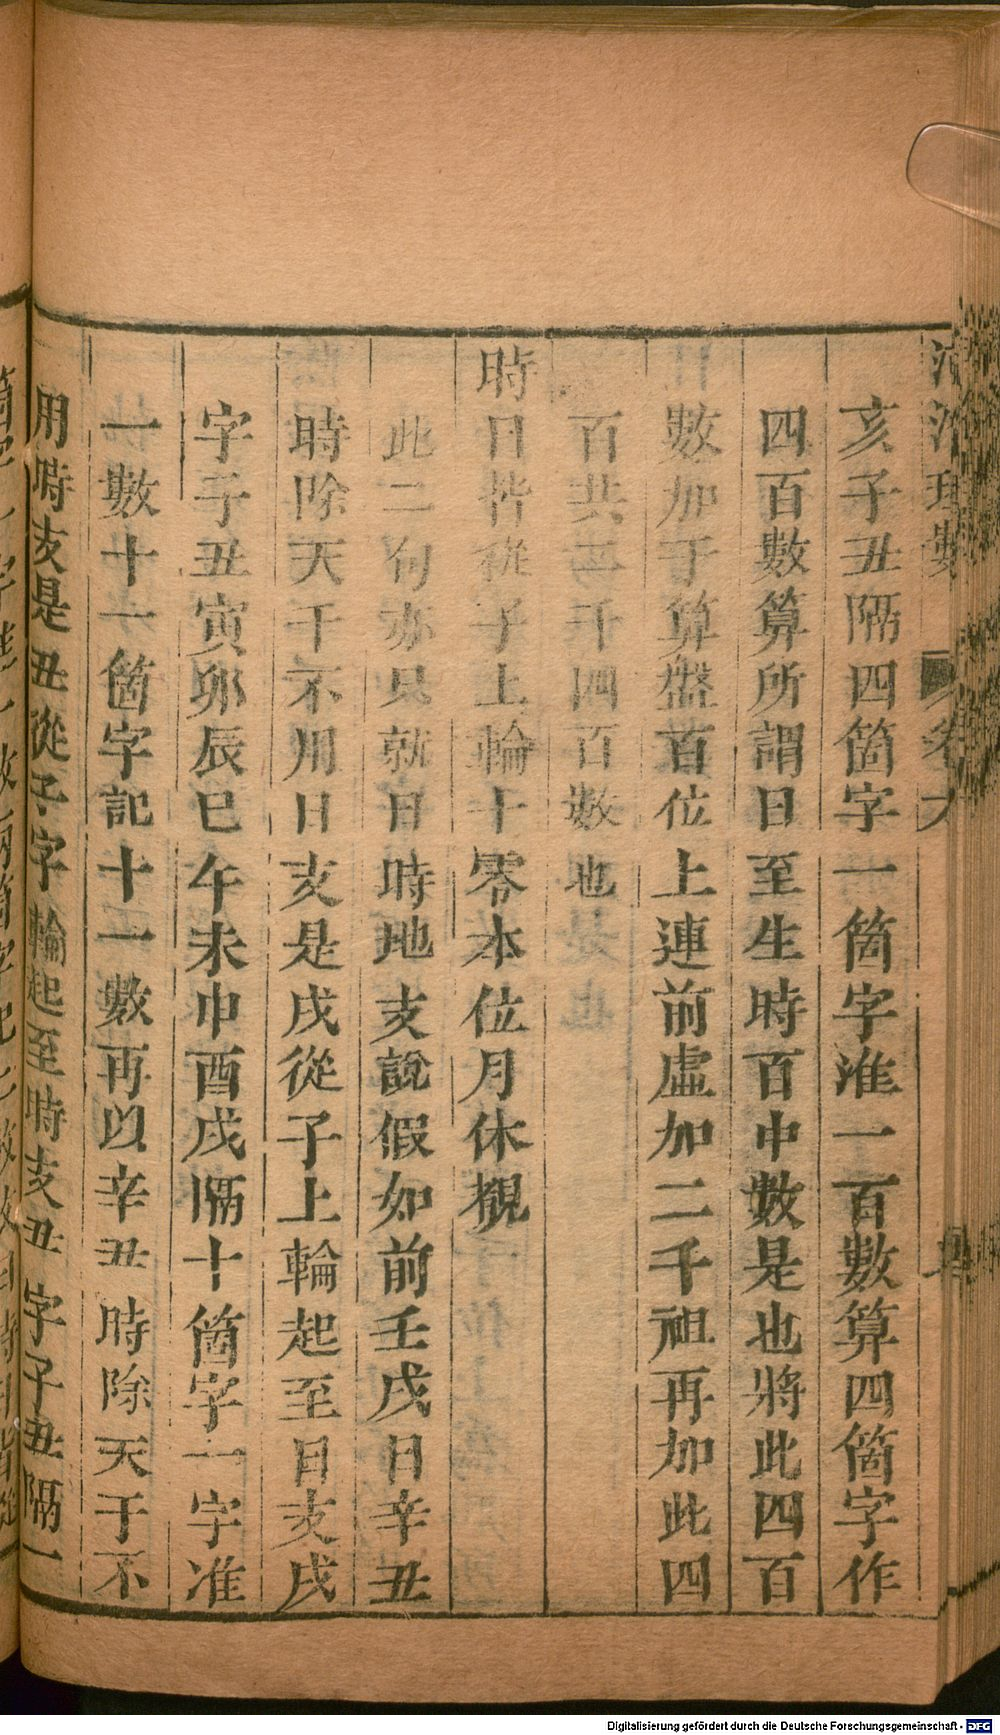 亥子丑隔四箇字一箇字准一百數算四箇字作
四百數算所謂日至生時百中數是也將此四百
數加于算盤首位上連前虛加二千祖再加此四
百共二千四百數也
時日皆從子上輪十零本位月休覩
此二句亦只就日時地支說假如前壬戌日辛丑
時除天干不用日支是戌從子上輪起至日支戌
字子丑寅卯辰巳午未申酉戌隔十箇字一字准
一數十一箇字記十一數再以辛丑時除天干不
用時支是丑從子字輪起至時支丑字子丑隔一
Digitalisierung gefördert durch die Deutsche Forschungsgemeinschaft - DFG